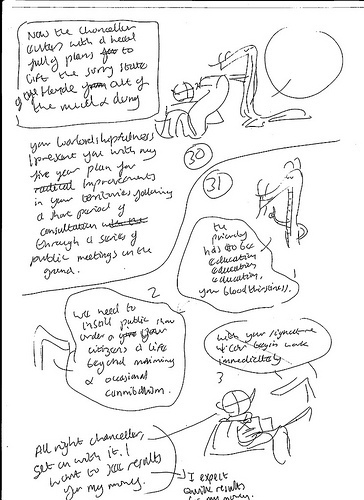 Now the Chancellor
enters with a head
full of plans to
lift the sorry state
of the Horde out of
the mud & dung
your warlordshipfulness
I present you with my
five year plan for
radical improvements
in your territories following
a short period of
consultation
through a series of
public meetings on the
ground.
30
31
the
priority
has to be
education
education
education,
your bloodthirstiness.
2
We need to
instill public
under a your
citizens a life
beyond maiming
& occasional
cannibalism.
with your signature
I can begin work
immediately
3
All right chancellor,
get on with it. I
want to see results
for my money.
I expect
results
for my money.